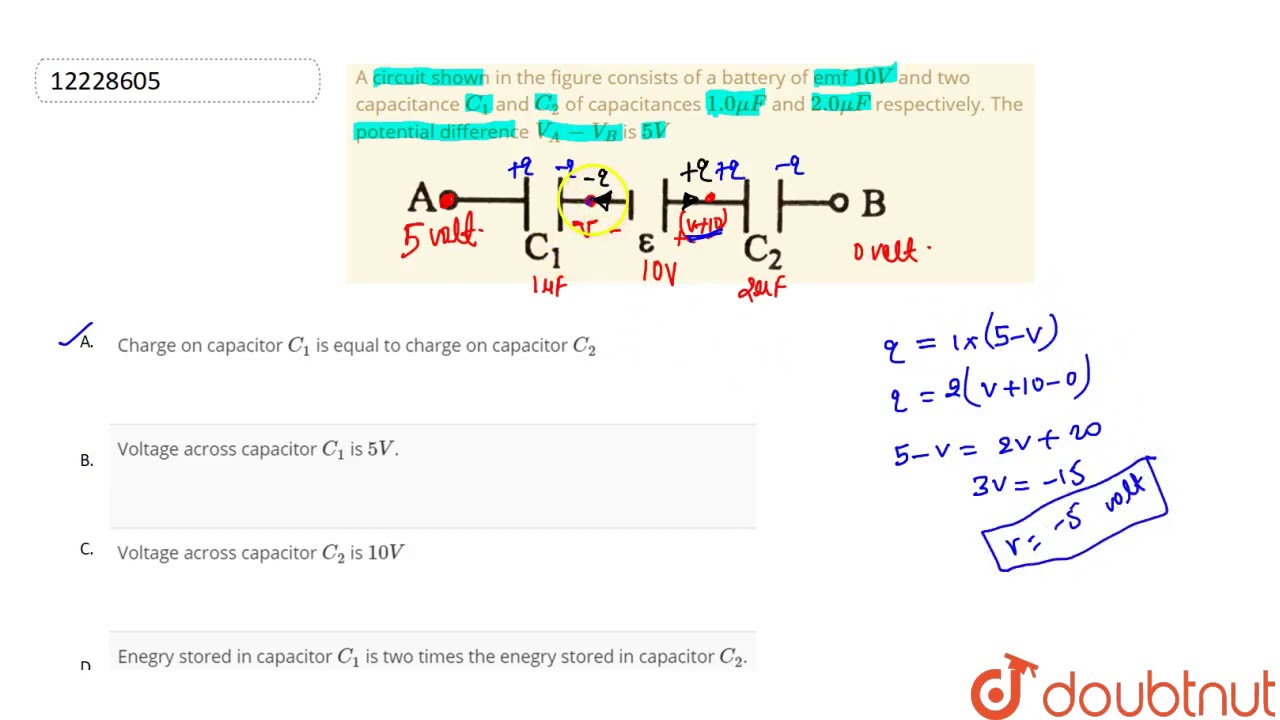 12228605
A circuit shown in the figure consists of a battery of emf 10V and two
capacitance C₁ and C₂ of capacitances 1.0μF and 2.0μF respectively. The
potential difference V_A − V_B is 5V
+q -q -q +q +q -q
A B
5 volt. - + (v+10) 0 volt.
C₁ ε C₂
1μF 10V 2μF
q = 1×(5-v)
q = 2(v+10-0)
5-v = 2v+20
3v = -15
v = -5 volt
A. Charge on capacitor C₁ is equal to charge on capacitor C₂
B. Voltage across capacitor C₁ is 5V.
C. Voltage across capacitor C₂ is 10V
D Enegry stored in capacitor C₁ is two times the enegry stored in capacitor C₂.
doubtnut